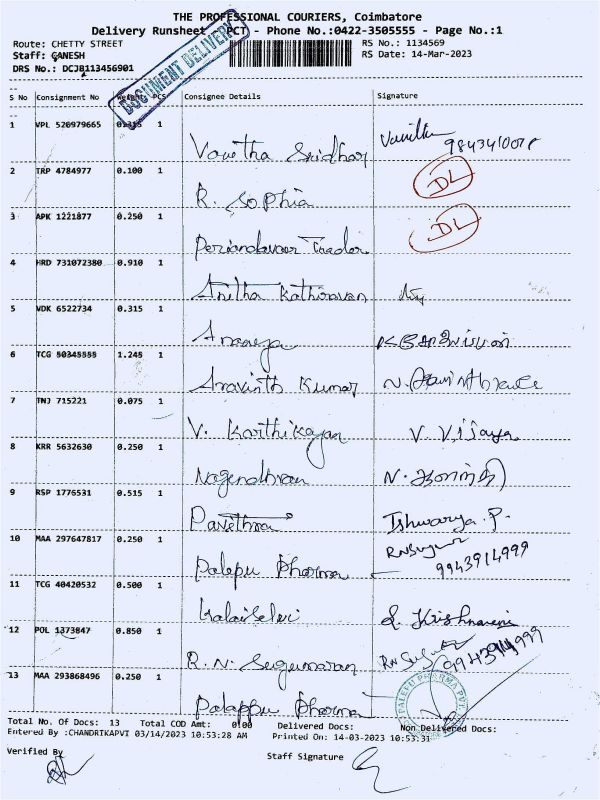 THE PROFESSIONAL COURIERS, Coimbatore
Delivery Runsheet - PCT - Phone No.:0422-3505555 - Page No.:1
Route: CHETTY STREET RS No.: 1134569
Staff: GANESH RS Date: 14-Mar-2023
DRS No.: DCJB113456901
DOCUMENT DELIVERY
S No Consignment No Weight PCS Consignee Details Signature
1 VPL 520979665 0.315 1
Vanitha Sridhar
2 TRP 4784977 0.100 1 DL
R. Sophia
3 APK 1221877 0.250 1 DL
4 HRD 731072380 0.910 1
Anitha Kathiravan
5 VDK 6522734 0.315 1
Ananya
6 TCG 50345555 1.245 1
Aravinth Kumar
7 TNJ 715221 0.075 1
V. Karthikayan V. Vijaya
8 KRR 5632630 0.250 1
Nagendhran
9 RSP 1776531 0.515 1
Pavethra Ishwarya.P.
10 MAA 297647817 0.250 1
Palepu Pharma 9943914999
11 TCG 40420532 0.500 1
Kalaiselvi
12 POL 1373847 0.850 1
R.N. Sugumaran 9943914999
13 MAA 293868496 0.250 1
Palappu Pharma
PALEPU PHARMA PVT.
Total No. Of Docs: 13 Total COD Amt: 0.00 Delivered Docs: Non Delivered Docs:
Entered By :CHANDRIKAPVI 03/14/2023 10:53:28 AM Printed On: 14-03-2023 10:53:31
Verified By Staff Signature